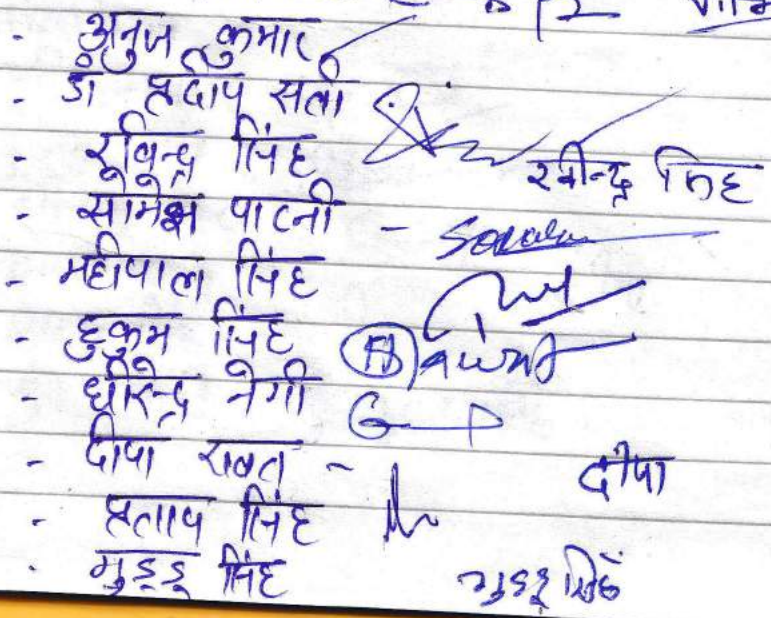 - अनुज कुमार
- डा प्रदीप सती
- रविन्द्र सिंह रवीन्द्र सिंह
- सोमेश पाटनी -
- महीपाल सिंह
- हुकुम सिंह
- धीरेन्द्र नेगी
- दीपा रावत - दीपा
- प्रताप सिंह
- गुड्डू सिंह गुड्डू सिंह